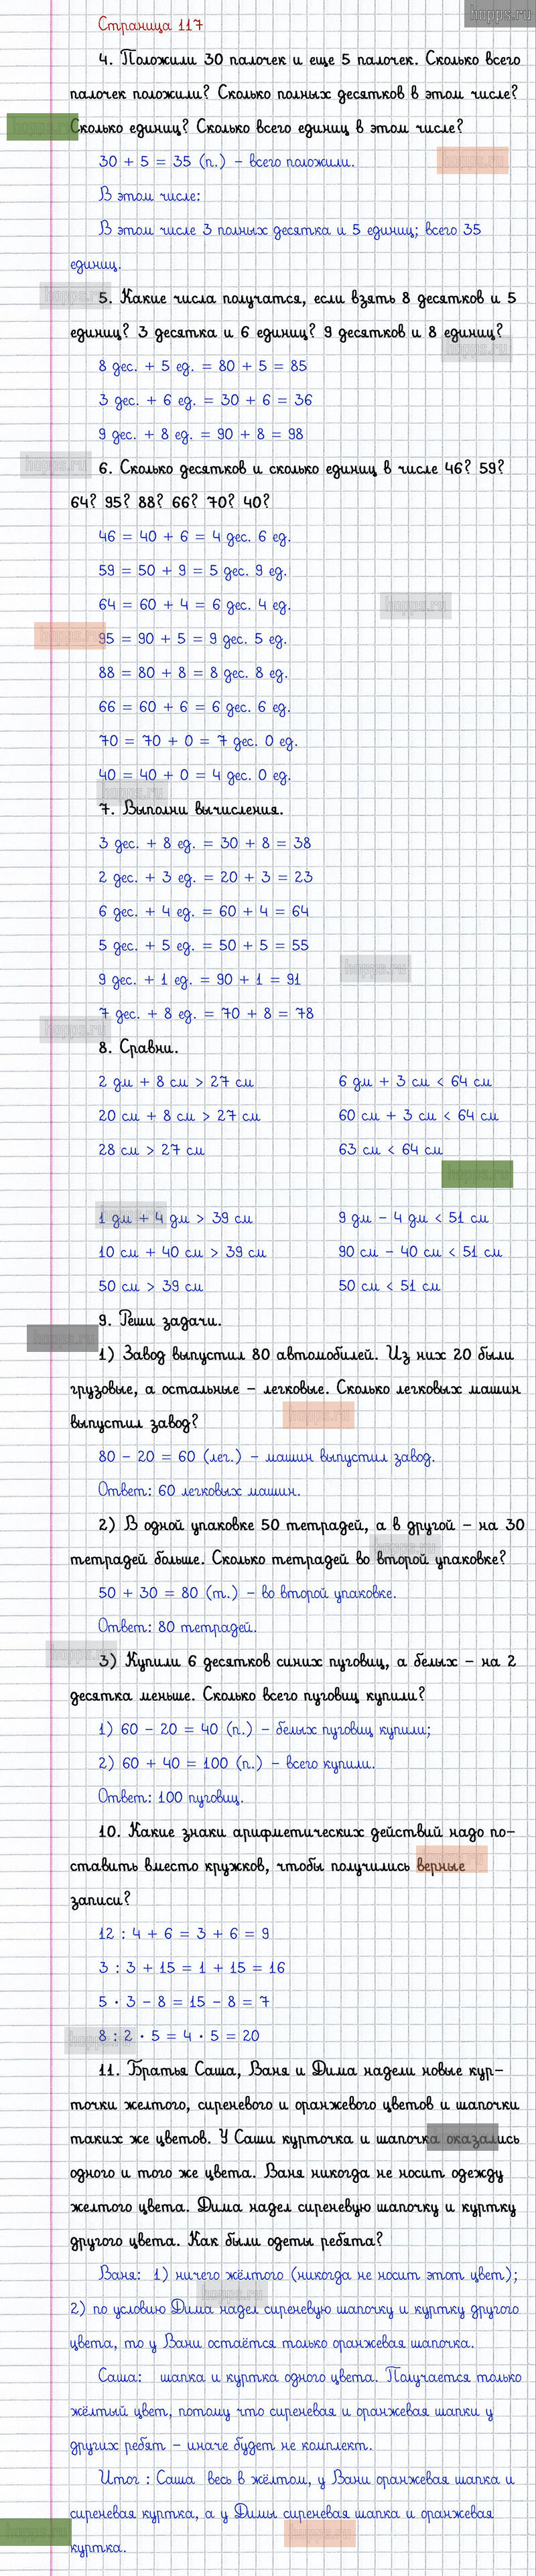 hopps.ru
Страница 117
4. Положили 30 палочек и еще 5 палочек. Сколько всего
палочек положили? Сколько полных десятков в этом числе?
Сколько единиц? Сколько всего единиц в этом числе?
30 + 5 = 35 (п.) – всего положили.
В этом числе:
В этом числе 3 полных десятка и 5 единиц; всего 35
единиц.
5. Какие числа получатся, если взять 8 десятков и 5
единиц? 3 десятка и 6 единиц? 9 десятков и 8 единиц?
8 дес. + 5 ед. = 80 + 5 = 85
3 дес. + 6 ед. = 30 + 6 = 36
9 дес. + 8 ед. = 90 + 8 = 98
6. Сколько десятков и сколько единиц в числе 46? 59?
64? 95? 88? 66? 70? 40?
46 = 40 + 6 = 4 дес. 6 ед.
59 = 50 + 9 = 5 дес. 9 ед.
64 = 60 + 4 = 6 дес. 4 ед.
95 = 90 + 5 = 9 дес. 5 ед.
88 = 80 + 8 = 8 дес. 8 ед.
66 = 60 + 6 = 6 дес. 6 ед.
70 = 70 + 0 = 7 дес. 0 ед.
40 = 40 + 0 = 4 дес. 0 ед.
7. Выполни вычисления.
3 дес. + 8 ед. = 30 + 8 = 38
2 дес. + 3 ед. = 20 + 3 = 23
6 дес. + 4 ед. = 60 + 4 = 64
5 дес. + 5 ед. = 50 + 5 = 55
9 дес. + 1 ед. = 90 + 1 = 91
7 дес. + 8 ед. = 70 + 8 = 78
8. Сравни.
2 дм + 8 см > 27 см 6 дм + 3 см < 64 см
20 см + 8 см > 27 см 60 см + 3 см < 64 см
28 см > 27 см 63 см < 64 см
1 дм + 4 дм > 39 см 9 дм – 4 дм < 51 см
10 см + 40 см > 39 см 90 см – 40 см < 51 см
50 см > 39 см 50 см < 51 см
9. Реши задачи.
1) Завод выпустил 80 автомобилей. Из них 20 были
грузовые, а остальные – легковые. Сколько легковых машин
выпустил завод?
80 – 20 = 60 (лег.) – машин выпустил завод.
Ответ: 60 легковых машин.
2) В одной упаковке 50 тетрадей, а в другой – на 30
тетрадей больше. Сколько тетрадей во второй упаковке?
50 + 30 = 80 (т.) – во второй упаковке.
Ответ: 80 тетрадей.
3) Купили 6 десятков синих пуговиц, а белых – на 2
десятка меньше. Сколько всего пуговиц купили?
1) 60 – 20 = 40 (п.) – белых пуговиц купили;
2) 60 + 40 = 100 (п.) – всего купили.
Ответ: 100 пуговиц.
10. Какие знаки арифметических действий надо по-
ставить вместо кружков, чтобы получились верные
записи?
12 : 4 + 6 = 3 + 6 = 9
3 : 3 + 15 = 1 + 15 = 16
5 · 3 – 8 = 15 – 8 = 7
8 : 2 · 5 = 4 · 5 = 20
11. Братья Саша, Ваня и Дима надели новые кур-
точки желтого, сиреневого и оранжевого цветов и шапочки
таких же цветов. У Саши курточка и шапочка оказались
одного и того же цвета. Ваня никогда не носит одежду
желтого цвета. Дима надел сиреневую шапочку и куртку
другого цвета. Как были одеты ребята?
Ваня: 1) ничего жёлтого (никогда не носит этот цвет);
2) по условию Дима надел сиреневую шапочку и куртку другого
цвета, то у Вани остаётся только оранжевая шапочка.
Саша: шапка и куртка одного цвета. Получается только
жёлтый цвет, потому что сиреневая и оранжевая шапки у
других ребят – иначе будет не комплект.
Итог : Саша весь в жёлтом, у Вани оранжевая шапка и
сиреневая куртка, а у Димы сиреневая шапка и оранжевая
куртка.